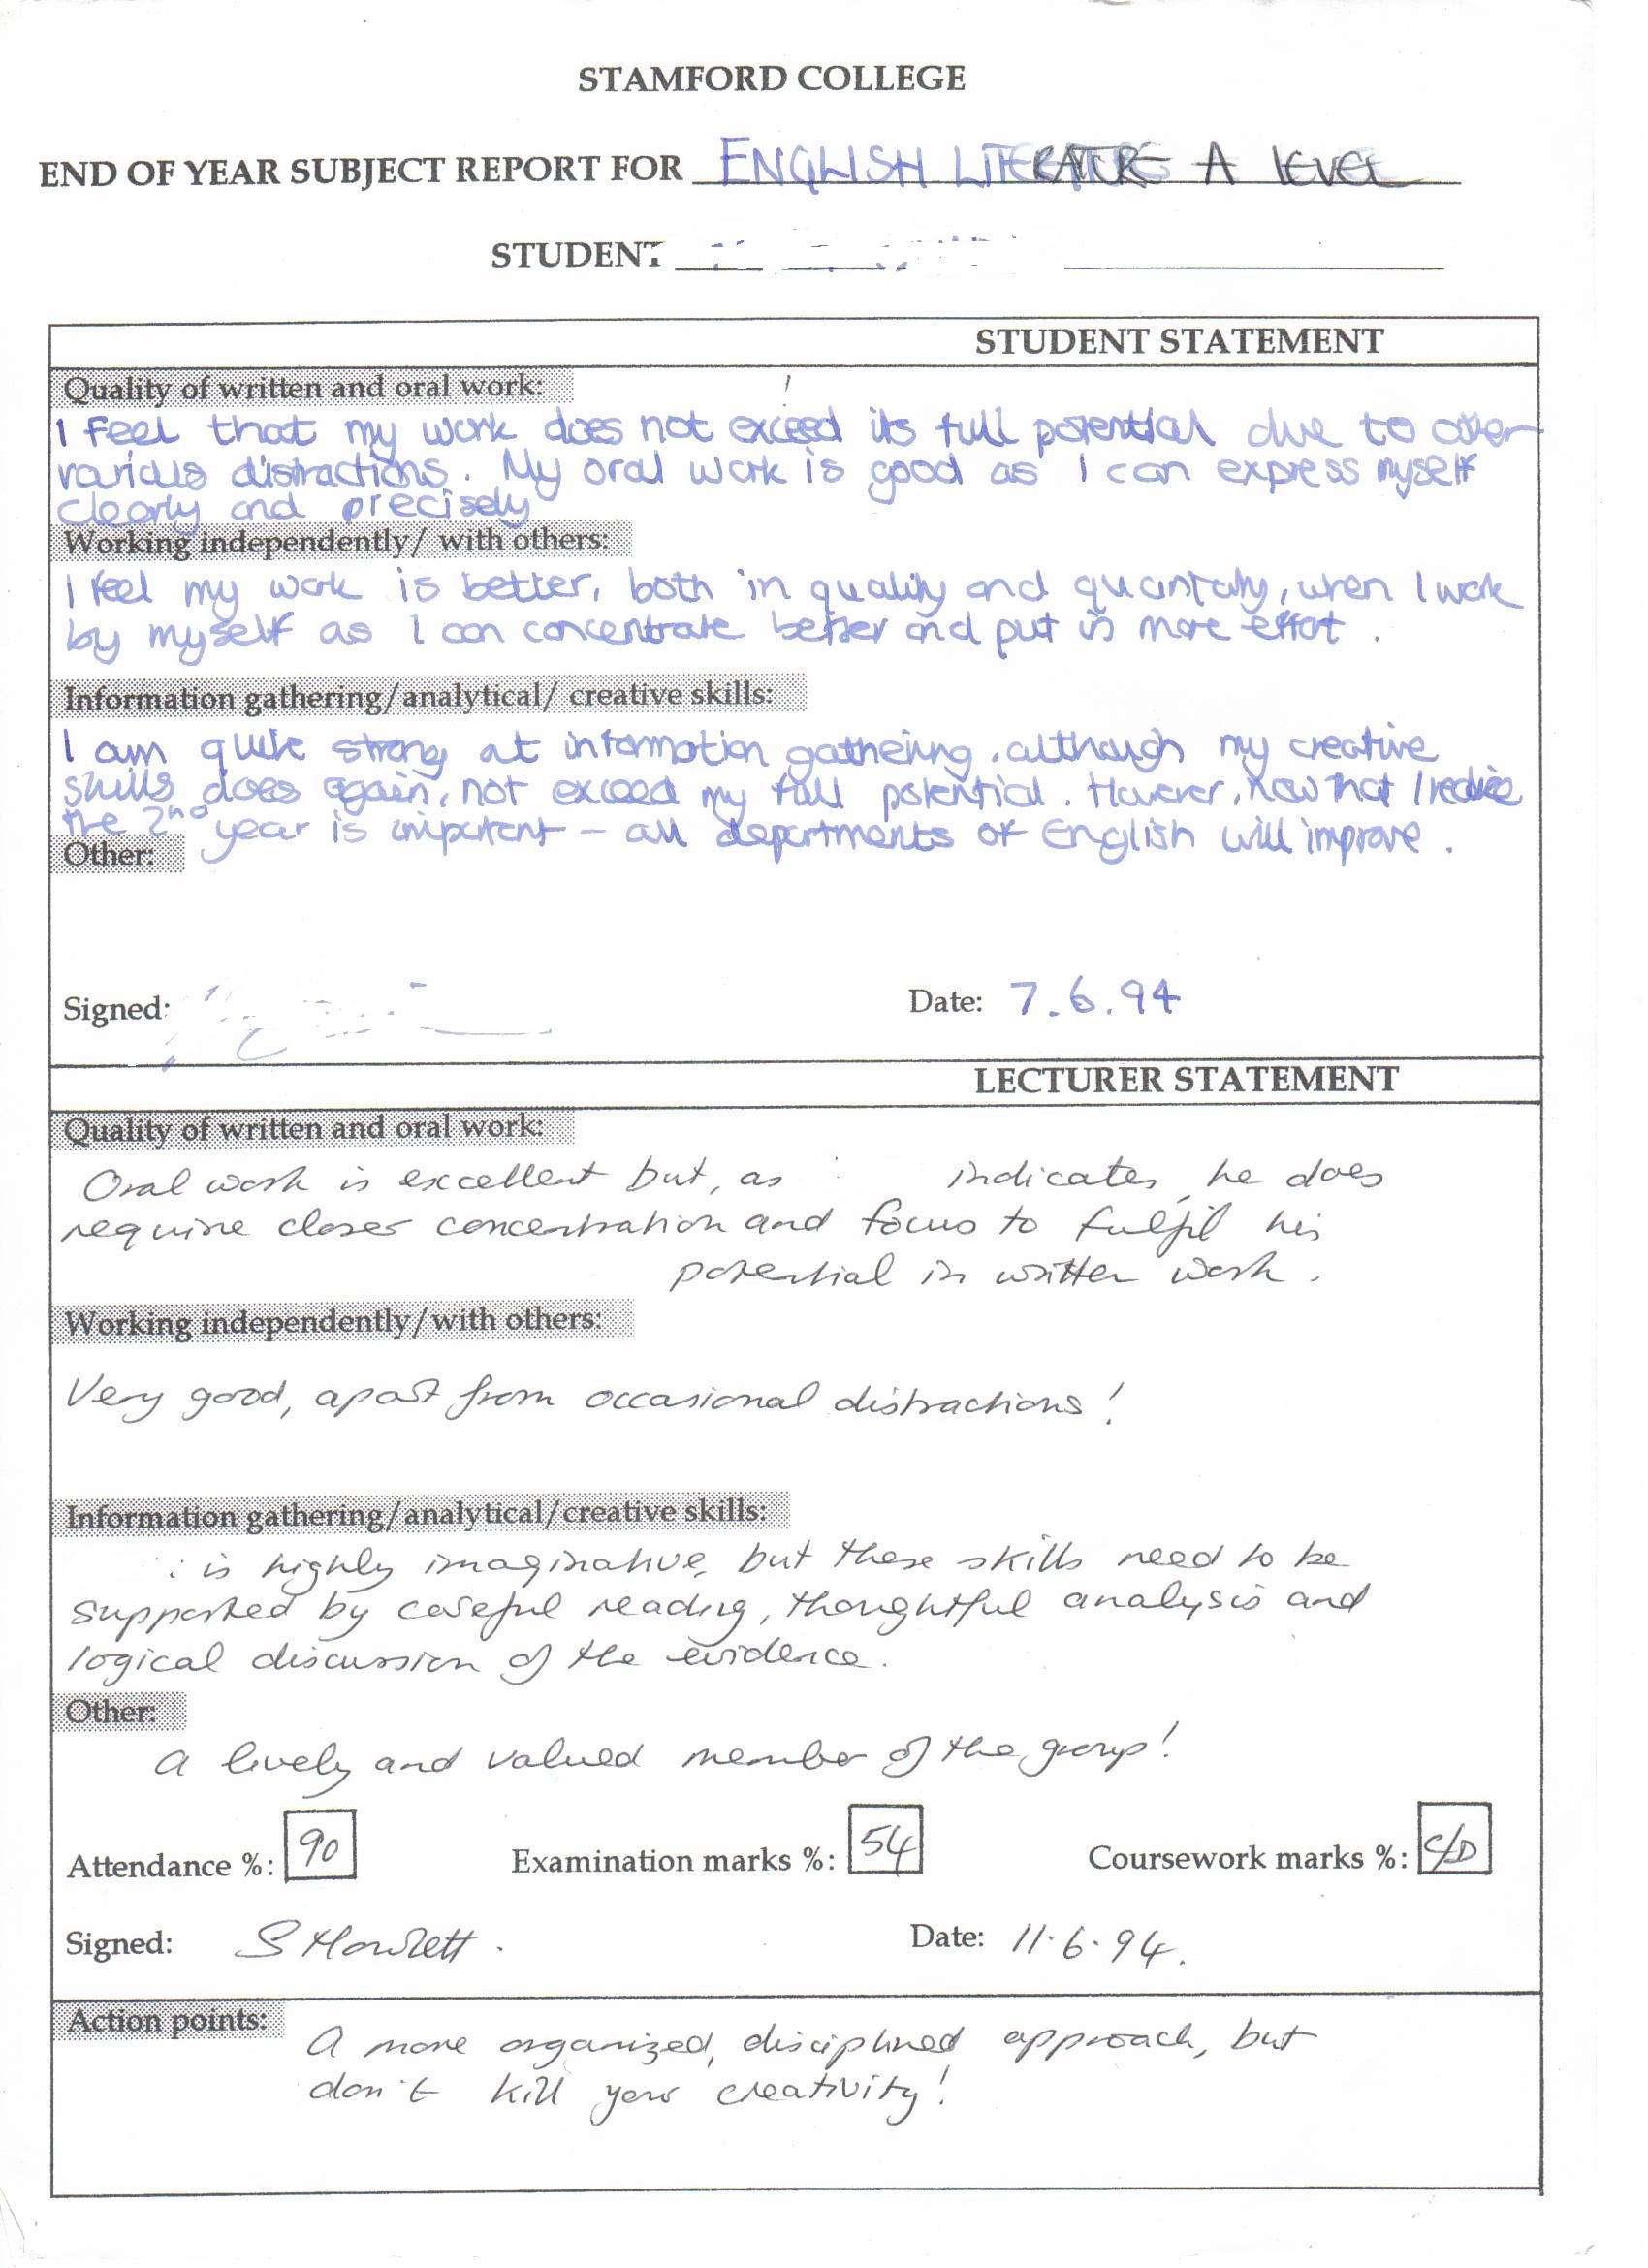 STAMFORD COLLEGE
END OF YEAR SUBJECT REPORT FOR ENGLISH LITERATURE A LEVEL
STUDENT
STUDENT STATEMENT
Quality of written and oral work:
I feel that my work does not exceed its full potential due to other
various distractions. My oral work is good as I can express myself
clearly and precisely
Working independently/ with others:
I feel my work is better, both in quality and quantity, when I work
by myself as I can concentrate better and put in more effort.
Information gathering/analytical/ creative skills:
I am quite strong at information gathering, although my creative
skills does again, not exceed my full potential. However, now that I realise
the 2nd year is important - all departments of English will improve.
Other:
Signed: Date: 7.6.94
LECTURER STATEMENT
Quality of written and oral work:
Oral work is excellent but, as indicates, he does
require closer concentration and focus to fulfil his
potential in written work.
Working independently/with others:
Very good, apart from occasional distractions!
Information gathering/analytical/creative skills:
is highly imaginative, but these skills need to be
supported by careful reading, thoughtful analysis and
logical discussion of the evidence.
Other:
A lively and valued member of the group!
Attendance %: 90 Examination marks %: 54 Coursework marks %: C/D
Signed: S Howlett. Date: 11.6.94.
Action points:
A more organized, disciplined approach, but
don't kill your creativity!